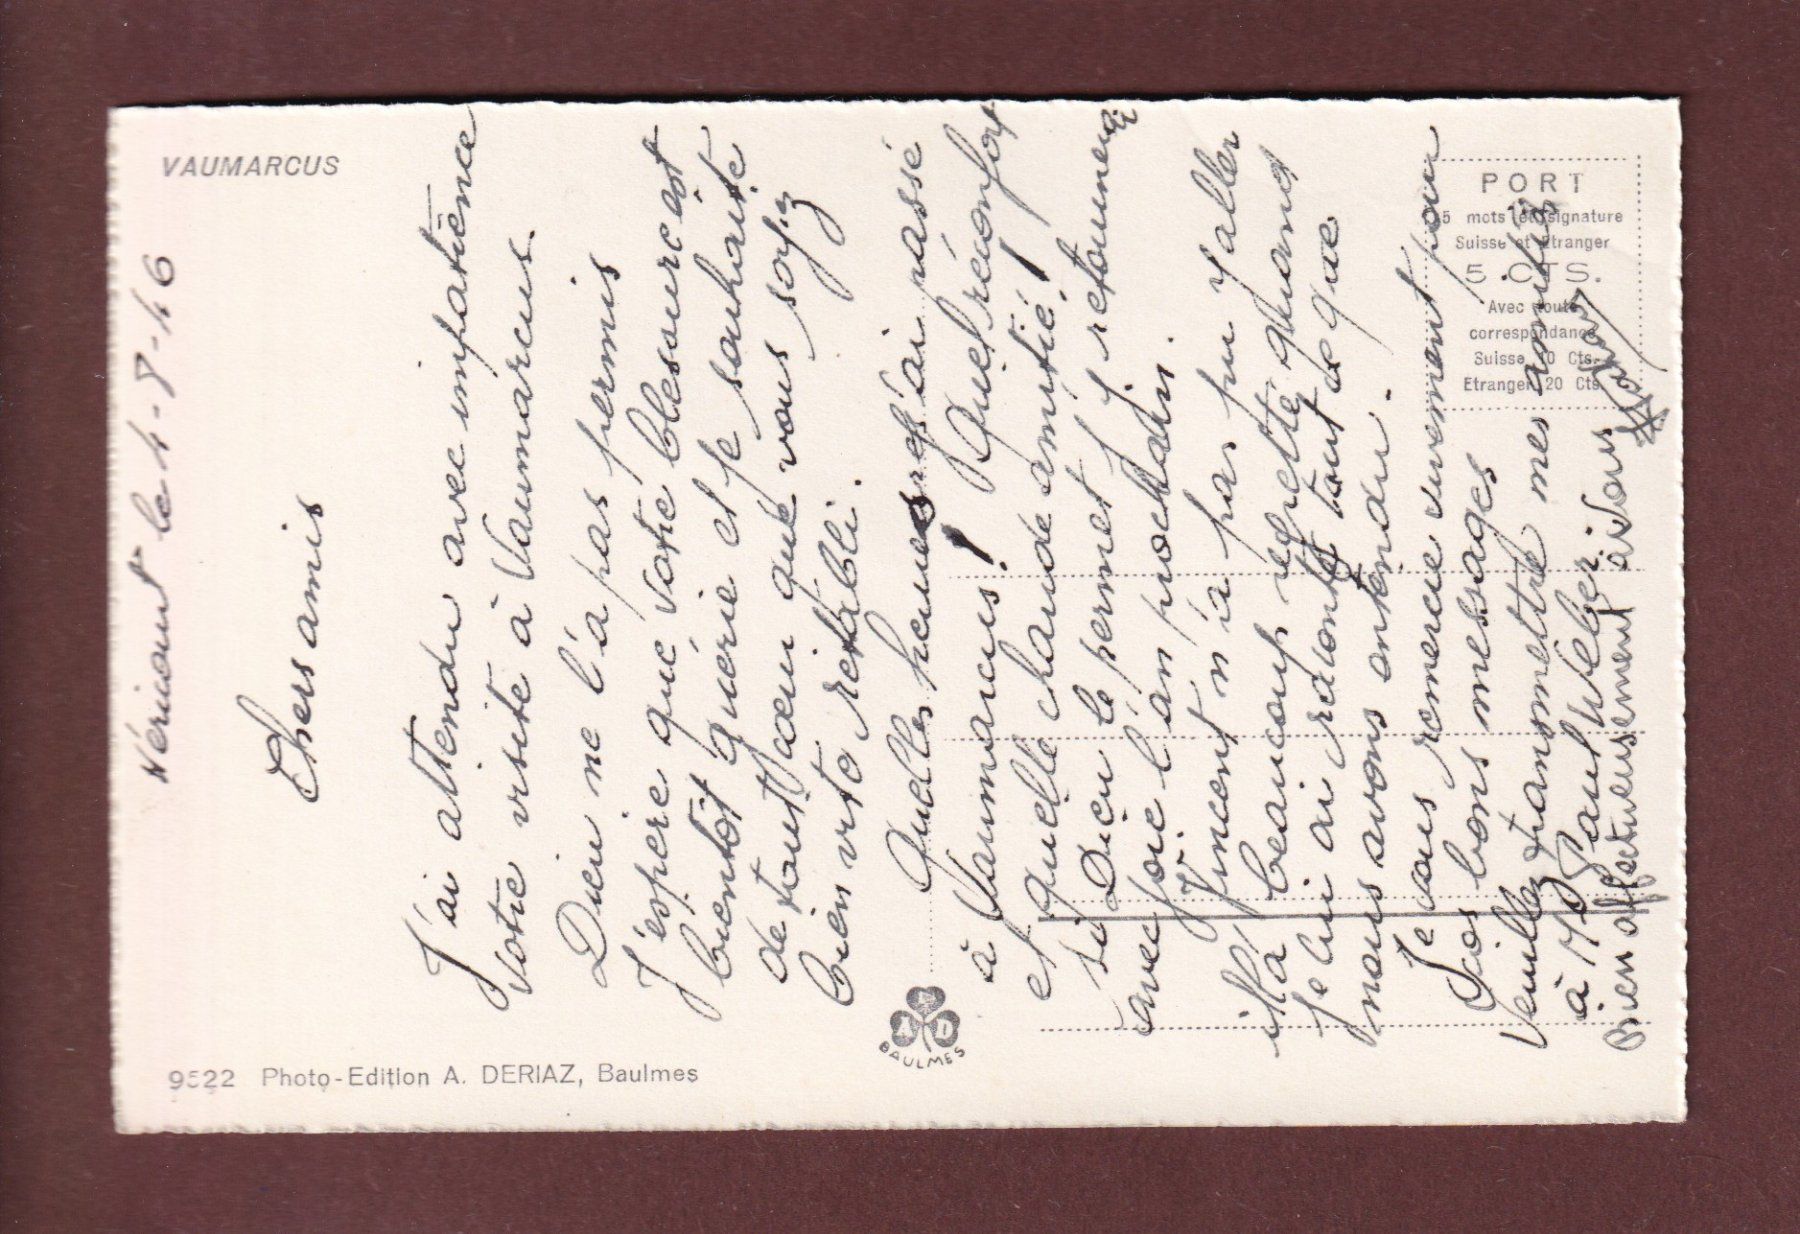 VAUMARCUS
le 4-8-46
Chers amis
J'ai attendu avec impatience
votre visite à Vaumarcus.
Dieu ne l'a pas permis
J'espère que votre blessure est
bientôt guérie et je souhaite
de tout cœur que vous soyez
bien vite rétabli.
Quelles heures j'ai passé
à Vaumarcus! Quel réconfort
et quelle chaude amitié!
si Dieu le permet j'y retournerai
avec joie l'an prochain.
Vincent n'a pas pu y aller
il l'a beaucoup regretté quand
je lui ai raconté tout ce que
nous avons entendu.
Je vous remercie vivement pour
vos bons messages
Veuillez transmettre mes amitiés
à Mr Paul Weber.
Bien affectueusement à vous
PORT
5 mots et signature
Suisse et Etranger
5 CTS.
Avec toute
correspondance
Suisse 10 Cts.
Etranger 20 Cts.
A E D
BAULMES
9522 Photo-Edition A. DERIAZ, Baulmes